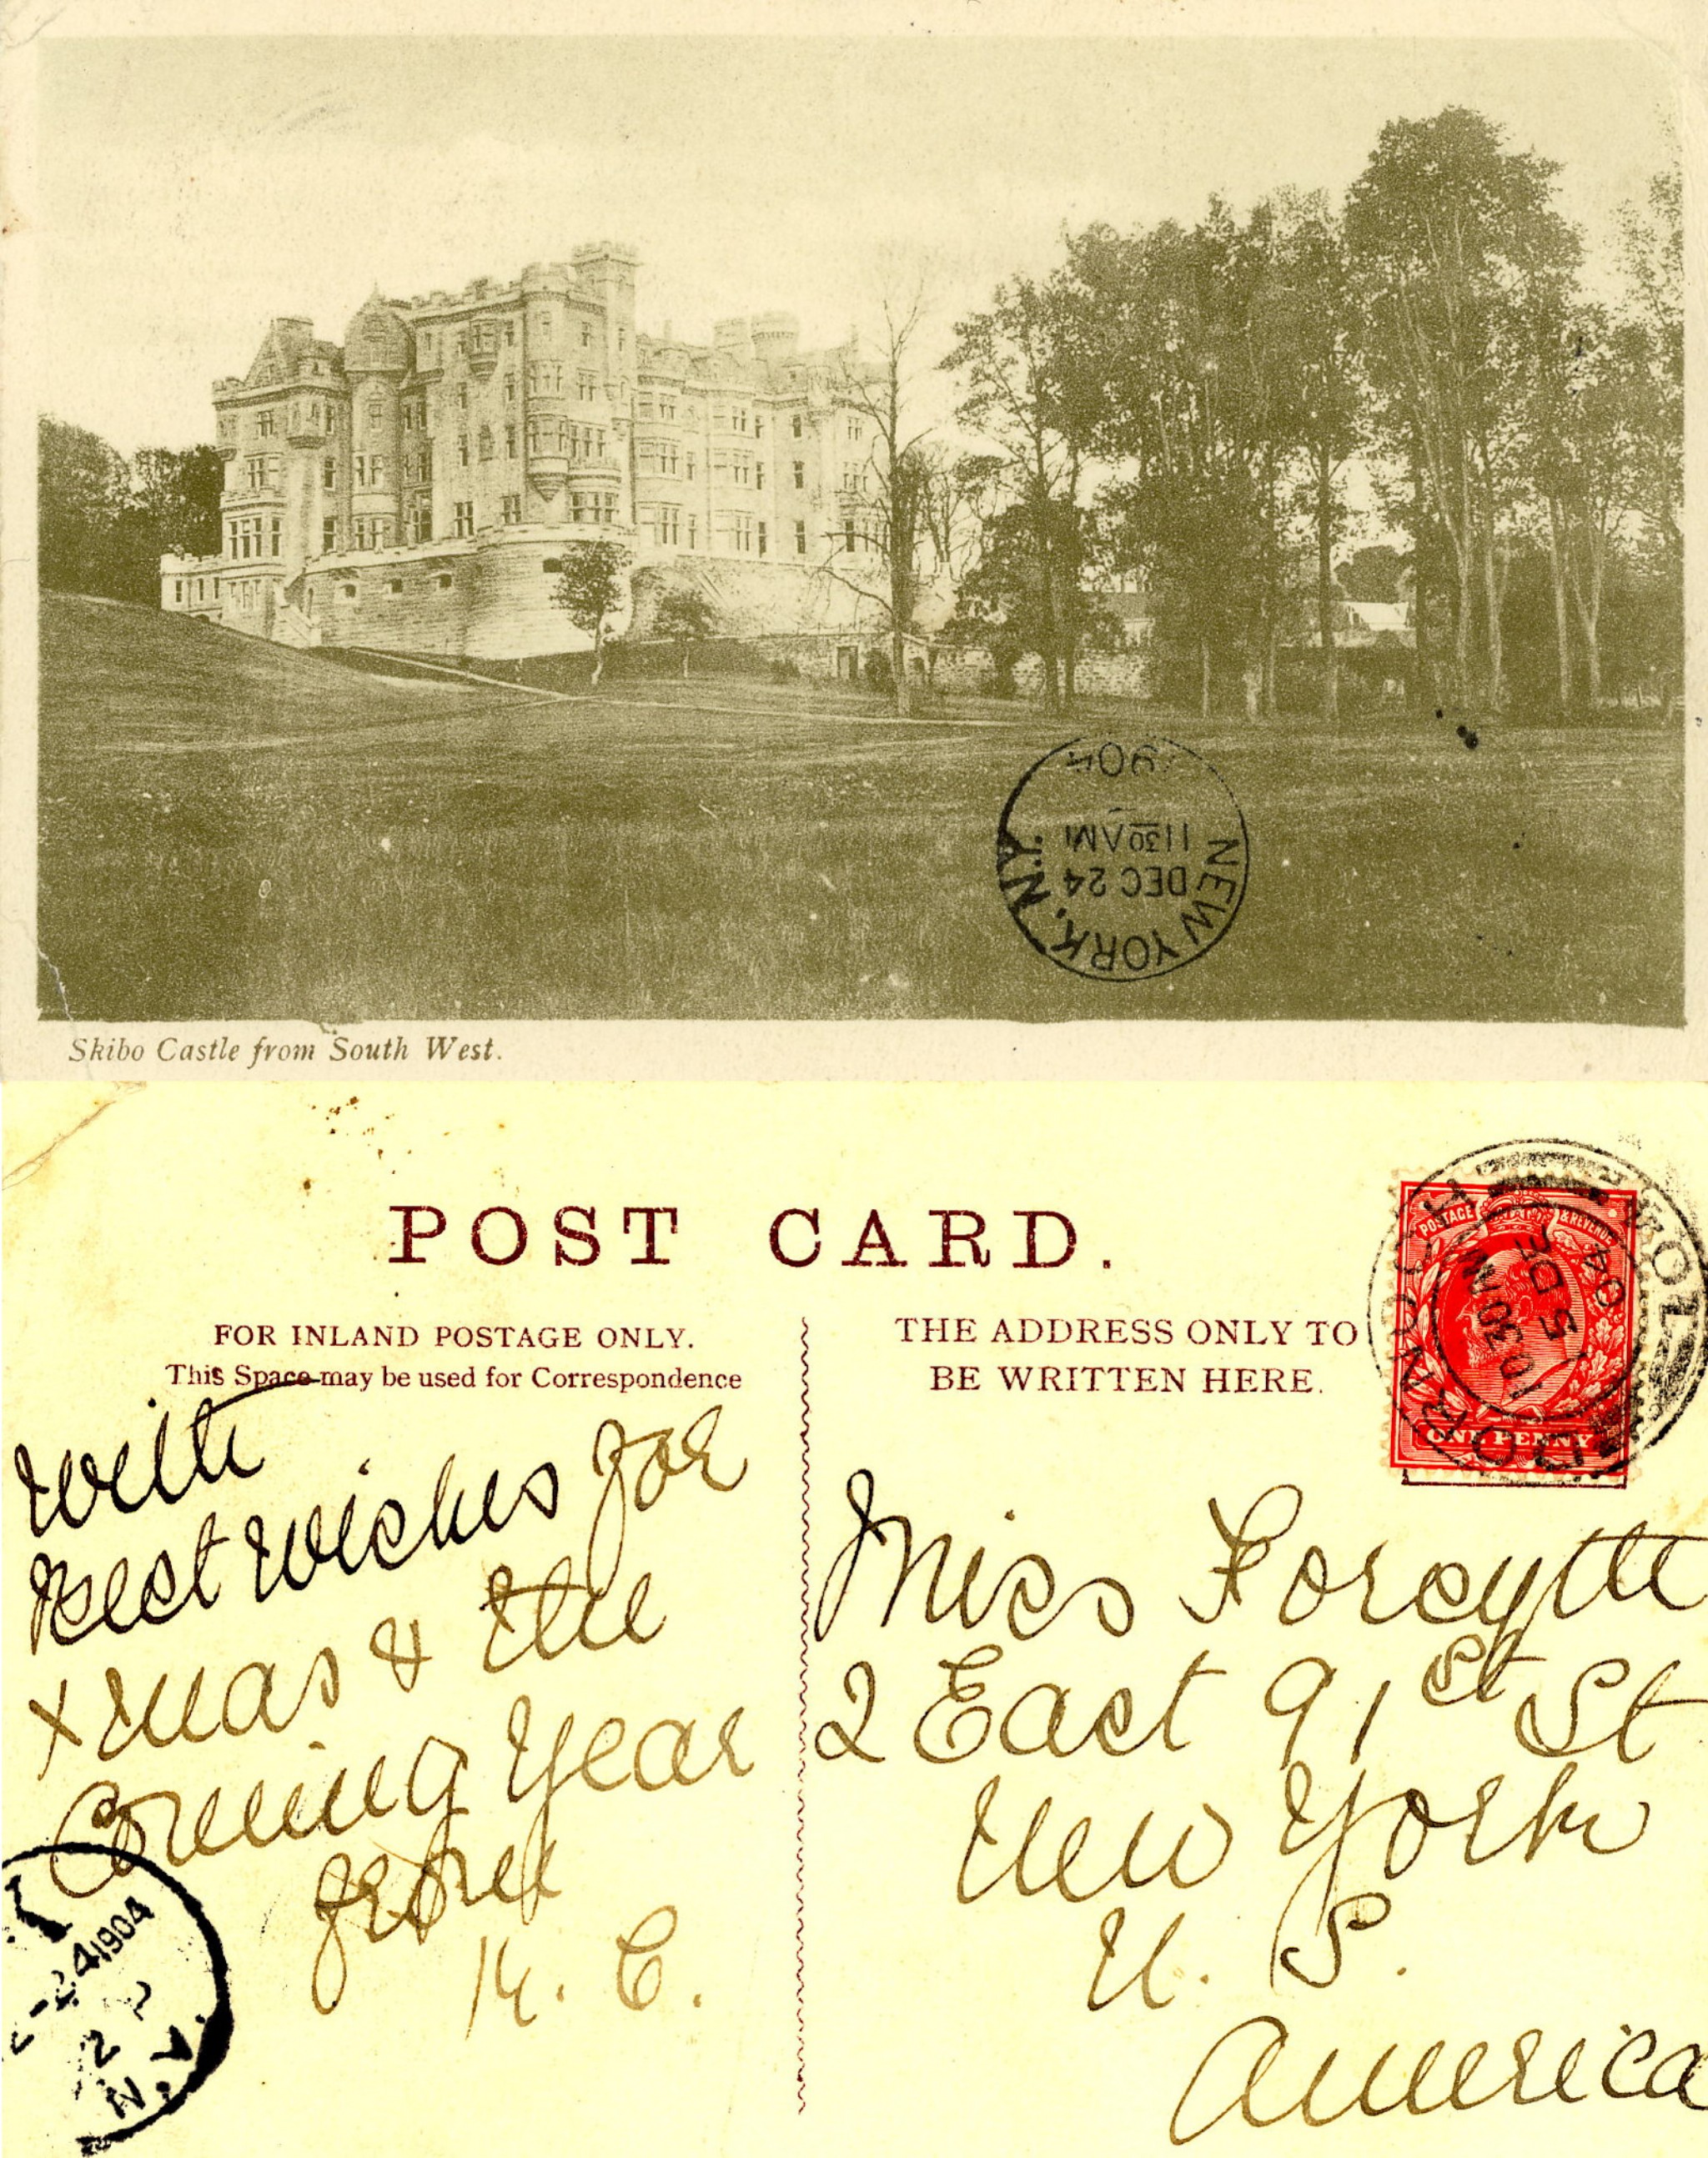 1904
1130AM
DEC 24
NEW YORK, N.Y.
Skibo Castle from South West.
POST CARD.
FOR INLAND POSTAGE ONLY.
This Space may be used for Correspondence
THE ADDRESS ONLY TO
BE WRITTEN HERE.
POSTAGE & REVENUE
ONE PENNY
DORNOCH
1030AM
15 DE
04
With
Best Wishes for
Xmas & the
Coming Year
from
K. C.
Miss Forsyth
2 East 91st St
New York
U. S.
America
-24 1904
2
N.Y.